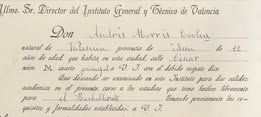 Iltmo. Sr. Director del Instituto General y Técnico de Valencia.
Don Andrés Morris
natural de Valencia provincia de idem de 12
años de edad, que habita en esta ciudad, calle
núm. cuarto principal a V. I. con el debido respeto dice:
Que deseando ser examinado en este Instituto para dar validez
académica en el presente curso a los estudios que tiene hechos libremente
para el Bachillerato llenando previamente los re-
quisitos y formalidades establecidas, a V. I.